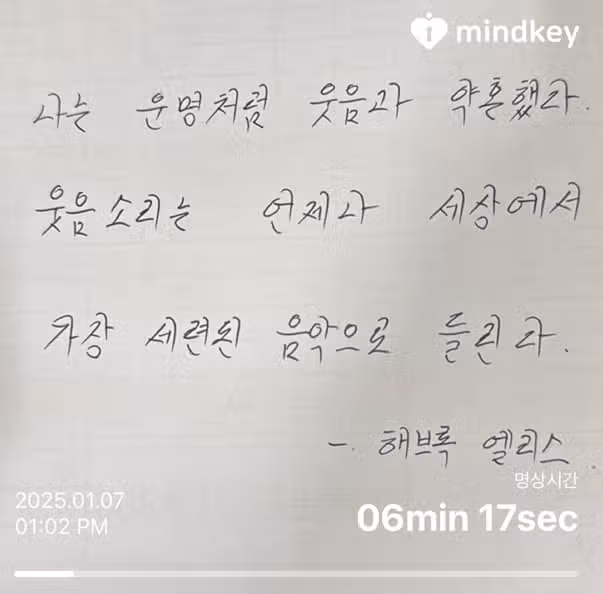 mindkey
나는 운명처럼 웃음과 약혼했다.
웃음소리는 언제나 세상에서
가장 세련된 음악으로 들린다.
- 해브록 엘리스.
명상시간
2025.01.07
01:02 PM
06min 17sec